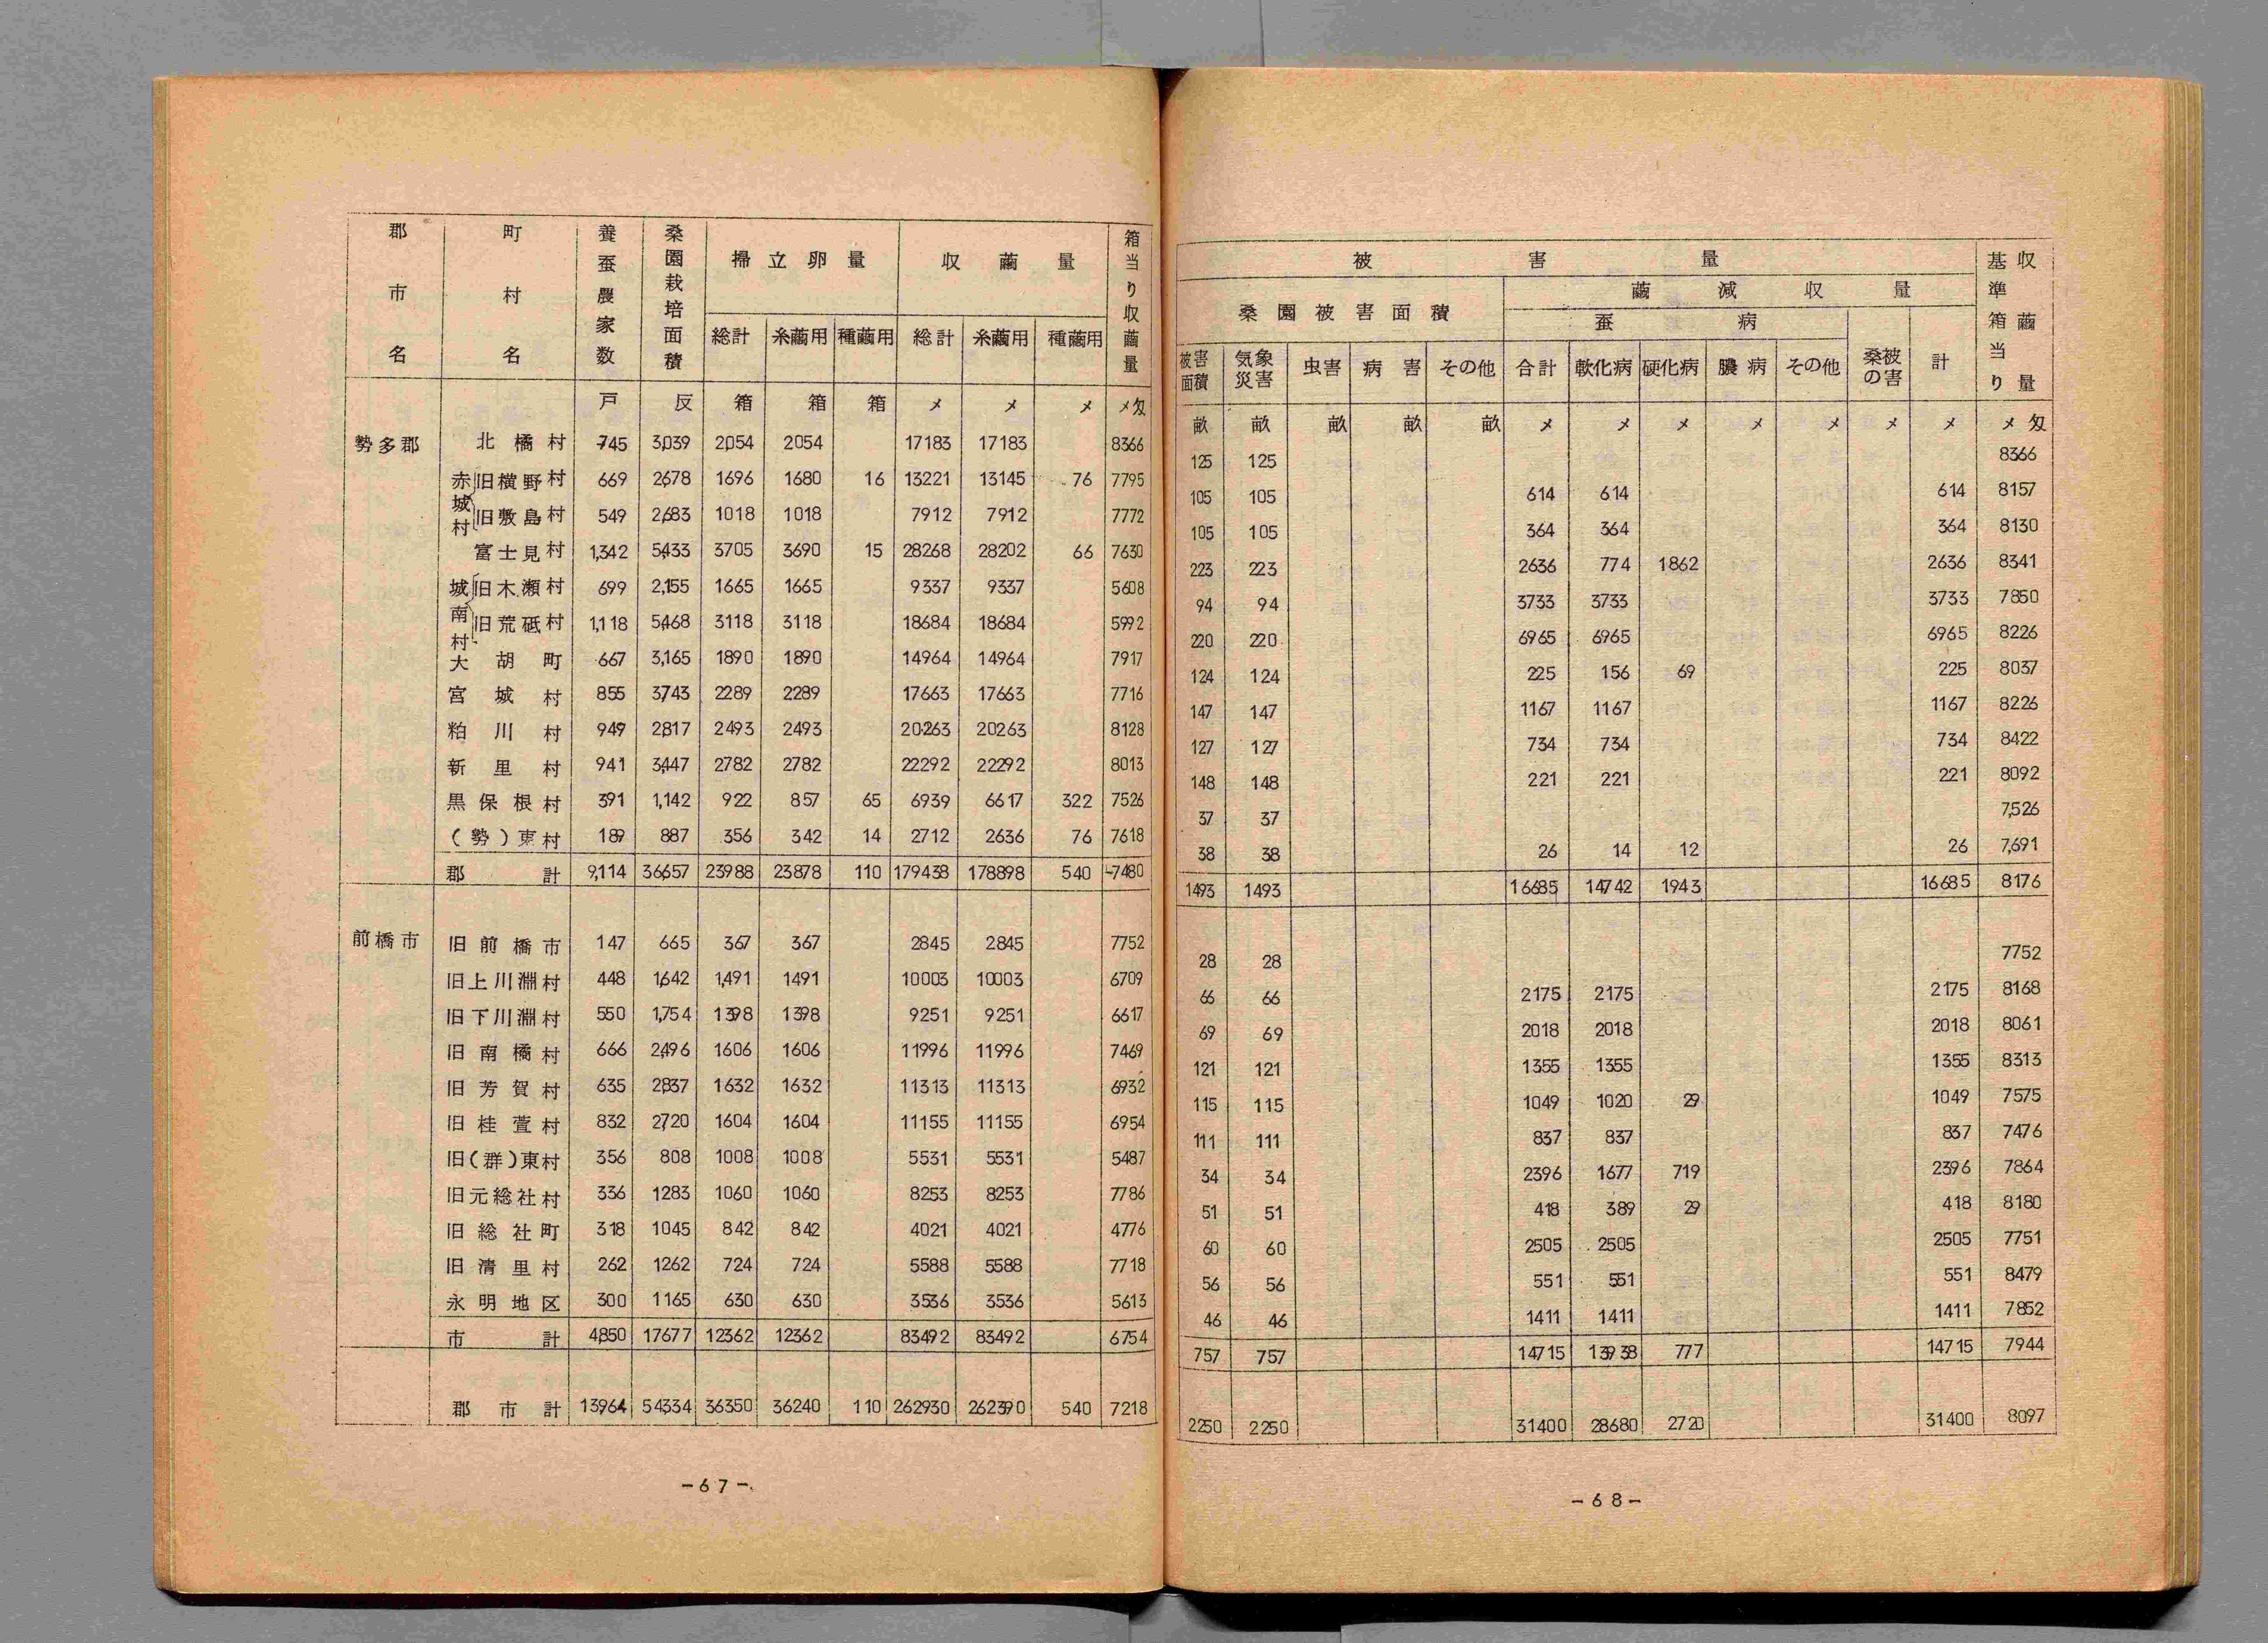 郡市名 町村名 養蚕農家数 桑園栽培面積 掃立卵量 収繭量 箱当り収繭量
総計 糸繭用 種繭用 総計 糸繭用 種繭用
戸 反 箱 箱 箱 メ メ メ メ匁
勢多郡 北橘村 745 3,039 2,054 2054 17183 17183 8366
赤城村 旧横野村 669 2,678 1696 1680 16 13221 13145 76 7795
旧敷島村 549 2,683 1018 1018 7912 7912 7772
富士見村 1,342 5,433 3705 3690 15 28268 28202 66 7630
城南村 旧木瀬村 699 2,155 1665 1665 9337 9337 5608
旧荒砥村 1,118 5,468 3118 3118 18684 18684 5992
大胡町 667 3,165 1890 1890 14964 14964 7917
宮城村 855 3,743 2289 2289 17663 17663 7716
粕川村 949 2,817 2493 2493 20263 20263 8128
新里村 941 3,447 2782 2782 22292 22292 8013
黒保根村 391 1,142 922 857 65 6939 6617 322 7526
(勢)東村 189 887 356 342 14 2712 2636 76 7618
郡計 9,114 36,657 23988 23878 110 179438 178898 540 7480
前橋市 旧前橋市 147 665 367 367 2845 2845 7752
旧上川淵村 448 1,642 1,491 1491 10003 10003 6709
旧下川淵村 550 1,754 1398 1398 9251 9251 6617
旧南橘村 666 2,496 1606 1606 11996 11996 7469
旧芳賀村 635 2,837 1632 1632 11313 11313 6932
旧桂萱村 832 2,720 1604 1604 11155 11155 6954
旧(群)東村 356 808 1008 1008 5531 5531 5487
旧元総社村 336 1283 1060 1060 8253 8253 7786
旧総社町 318 1045 842 842 4021 4021 4776
旧清里村 262 1262 724 724 5588 5588 7718
永明地区 300 1165 630 630 3536 3536 5613
市計 4,850 17677 12362 12362 83492 83492 6754
郡市計 13964 54334 36350 36240 110 262930 262390 540 7218
-67-
被害量 基準箱当り収繭量
桑園被害面積 繭減収量
蚕病
被害面積 気象災害 虫害 病害 その他 合計 軟化病 硬化病 膿病 その他 桑被の害 計
畝 畝 畝 畝 畝 メ メ メ メ メ メ メ メ匁
125 125 8366
105 105 614 614 614 8157
105 105 364 364 364 8130
223 223 2636 774 1862 2636 8341
94 94 3733 3733 3733 7850
220 220 6965 6965 6965 8226
124 124 225 156 69 225 8037
147 147 1167 1167 1167 8226
127 127 734 734 734 8422
148 148 221 221 221 8092
37 37 7,526
38 38 26 14 12 26 7,691
1493 1493 16685 14742 1943 16685 8176
28 28 7752
66 66 2175 2175 2175 8168
69 69 2018 2018 2018 8061
121 121 1355 1355 1355 8313
115 115 1049 1020 29 1049 7575
111 111 837 837 837 7476
34 34 2396 1677 719 2396 7864
51 51 418 389 29 418 8180
60 60 2505 2505 2505 7751
56 56 551 551 551 8479
46 46 1411 1411 1411 7852
757 757 14715 13938 777 14715 7944
2250 2250 31400 28680 2720 31400 8097
-68-